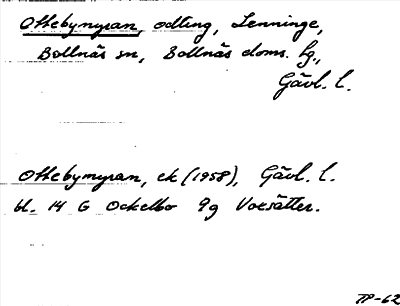 Ottebymyran, odling, Lenninge,
Bollnäs sn, Bollnäs doms. hg.,
Gävl. l.
Ottebymyran, ek (1958), Gävl. l.
bl. 14 G Ockelbo 9g Voxsätter.
TP-62